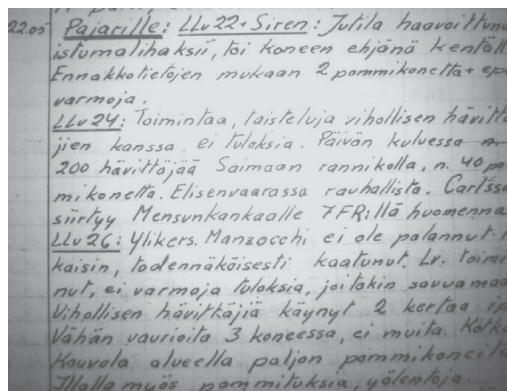 22.05 Pajarille: LLv22 + Siren: Jutila haavoittunu
istumalihaksii, toi koneen ehjänä kentäll
Ennakkotietojen mukaan 2 pommikonetta + ep
varmoja.
LLv24: Toimintaa, taisteluja vihollisen hävittä
jien kanssa, ei tuloksia. Päivän kuluessa n.
200 hävittäjää Saimaan rannikolla, n. 40 po
mikonetta. Elisenvaarassa rauhallista. Carlsso
siirtyy Mensunkankaalle 7FR:llä huomenna
LLv26: Ylikers. Manzocchi ei ole palannut
kaisin, todennäköisesti kaatunut. Lv. toimi
nut, ei varmoja tuloksia, joitakin savuamaa
Vihollisen hävittäjiä käynyt 2 kertaa ip
Vähän vaurioita 3 koneessa, ei muita. Kotka
Kouvola alueella paljon pommikoneita
Illalla myös pommituksia, yölentoja